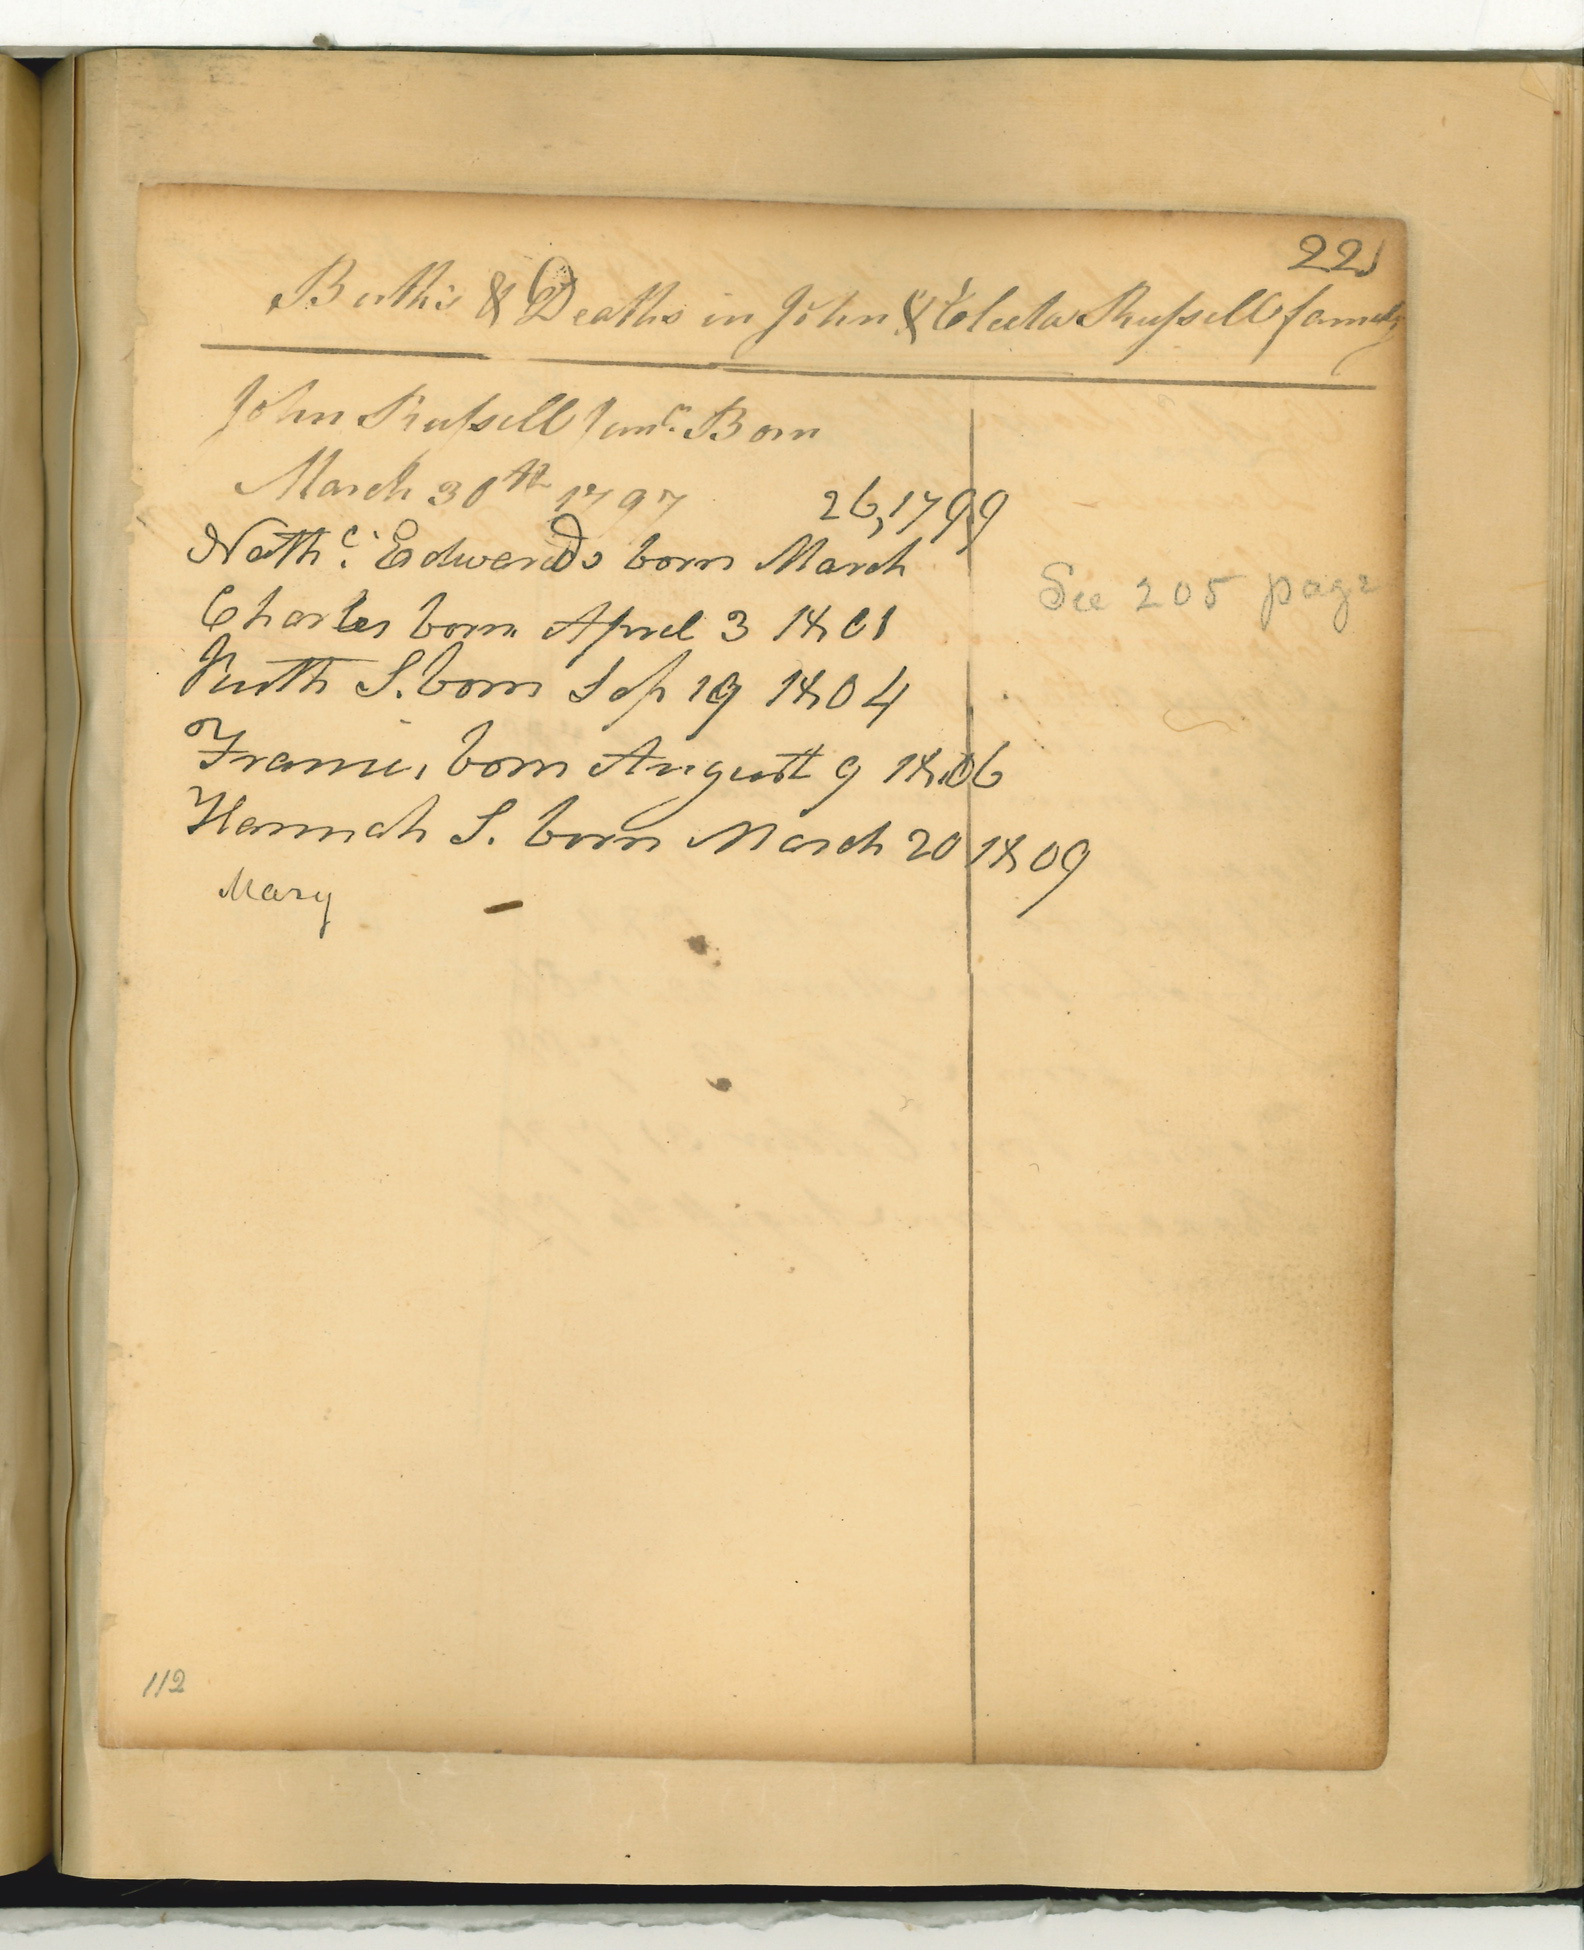 221
Births & Deaths in John & Electa Russell family
John Russell Junr. Born
March 30th 1797
26, 1799
Nathl. Edwards born March
See 205 page
Charles born April 3 1801
Ruth S. born Sep 19 1804
born August 9 1806
Hannah S. born March 20 1809
Mary
112